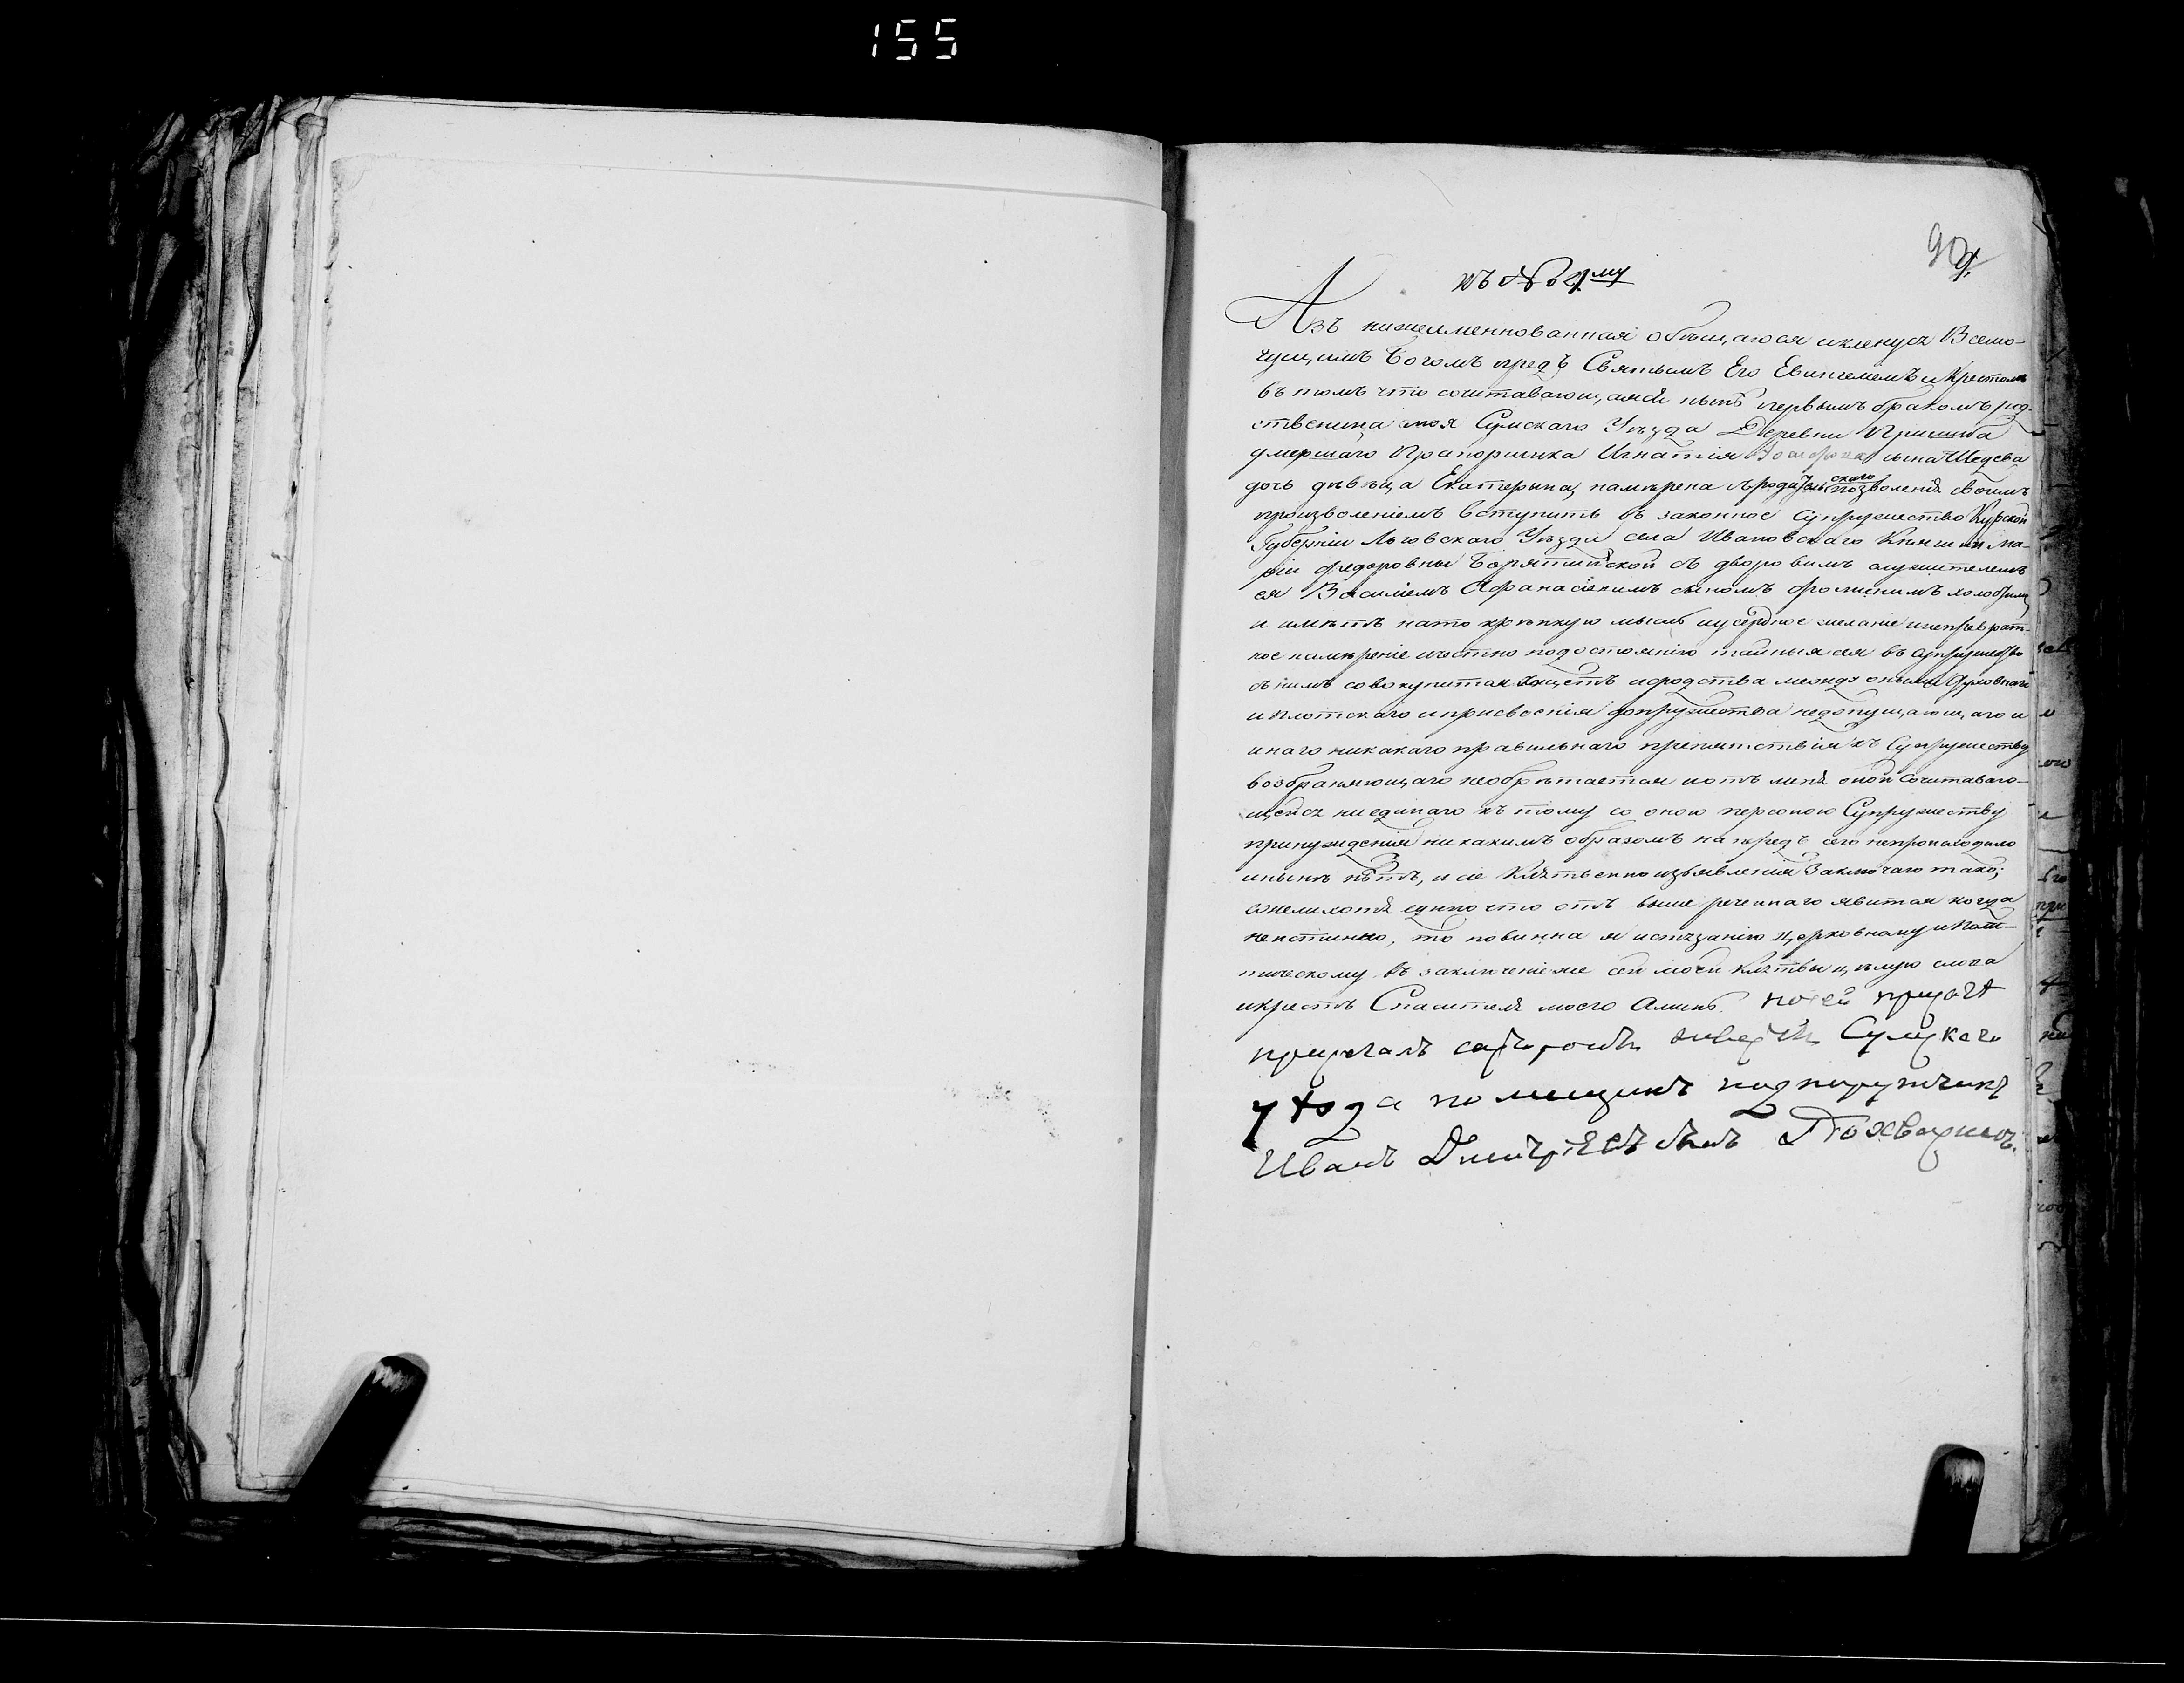 155
90
къ № 4му
Азъ нижеименнованная обѣщаюся икленусь Всемо-
гущимъ Богомъ предъ Святымъ Его Евангелiемъ иКрестомъ
въ томъ что сочитавающаяся нынѣ первымъ бракомъ род-
ственица моя Сумскаго Уѣзда Деревни
умершаго Прапорщика Игнатiя сына Шедева
дочь дѣвица Екатерина намѣрена сродительскаго позволенiя своимъ
произволенiемъ вступить въ законное супружество Курской
Губернiи Льговскаго Уѣзда села Ивановскаго Княгини Ма-
рiи Федоровны Борятинской съ дворовымъ служителемъ
ея Василiемъ Афанасiевимъ сыномъ холостымъ
и имѣетъ нато крѣпкую мысль иусердное желанiе инепреврат-
ное намѣренiе ичестно подостоянiю тайныя сея въ супружество
снимъ совокупитися хощетъ иродства между оными Духовнаго
иплотскаго иприсвоенiя допружества недопущающаго и
инаго никакаго правильнаго препятствiя къ Супружеству
возбраняющаго необрѣтается иотъ меня оной сочитаваю-
щейся ниединаго къ тому со оною персоною Супружеству
принужденiя никакимъ образомъ напредъ сего непроиходило
инынѣ нѣтъ, и се Клятвенно изъявленiя Заключаю тако;
ежелихотя едино что отъ выше реченнаго явится когда
неистинно, то повинна я истязанiю церковному иПоли-
тическому въ заключенiе же сей моей клятвы цѣлую слова
икрестъ Спасителя моего Аминь. ксей присяге
Сумскаго
уѣзда помещикъ подпорутчикъ
Иванъ Дмитрiевъ сынъ